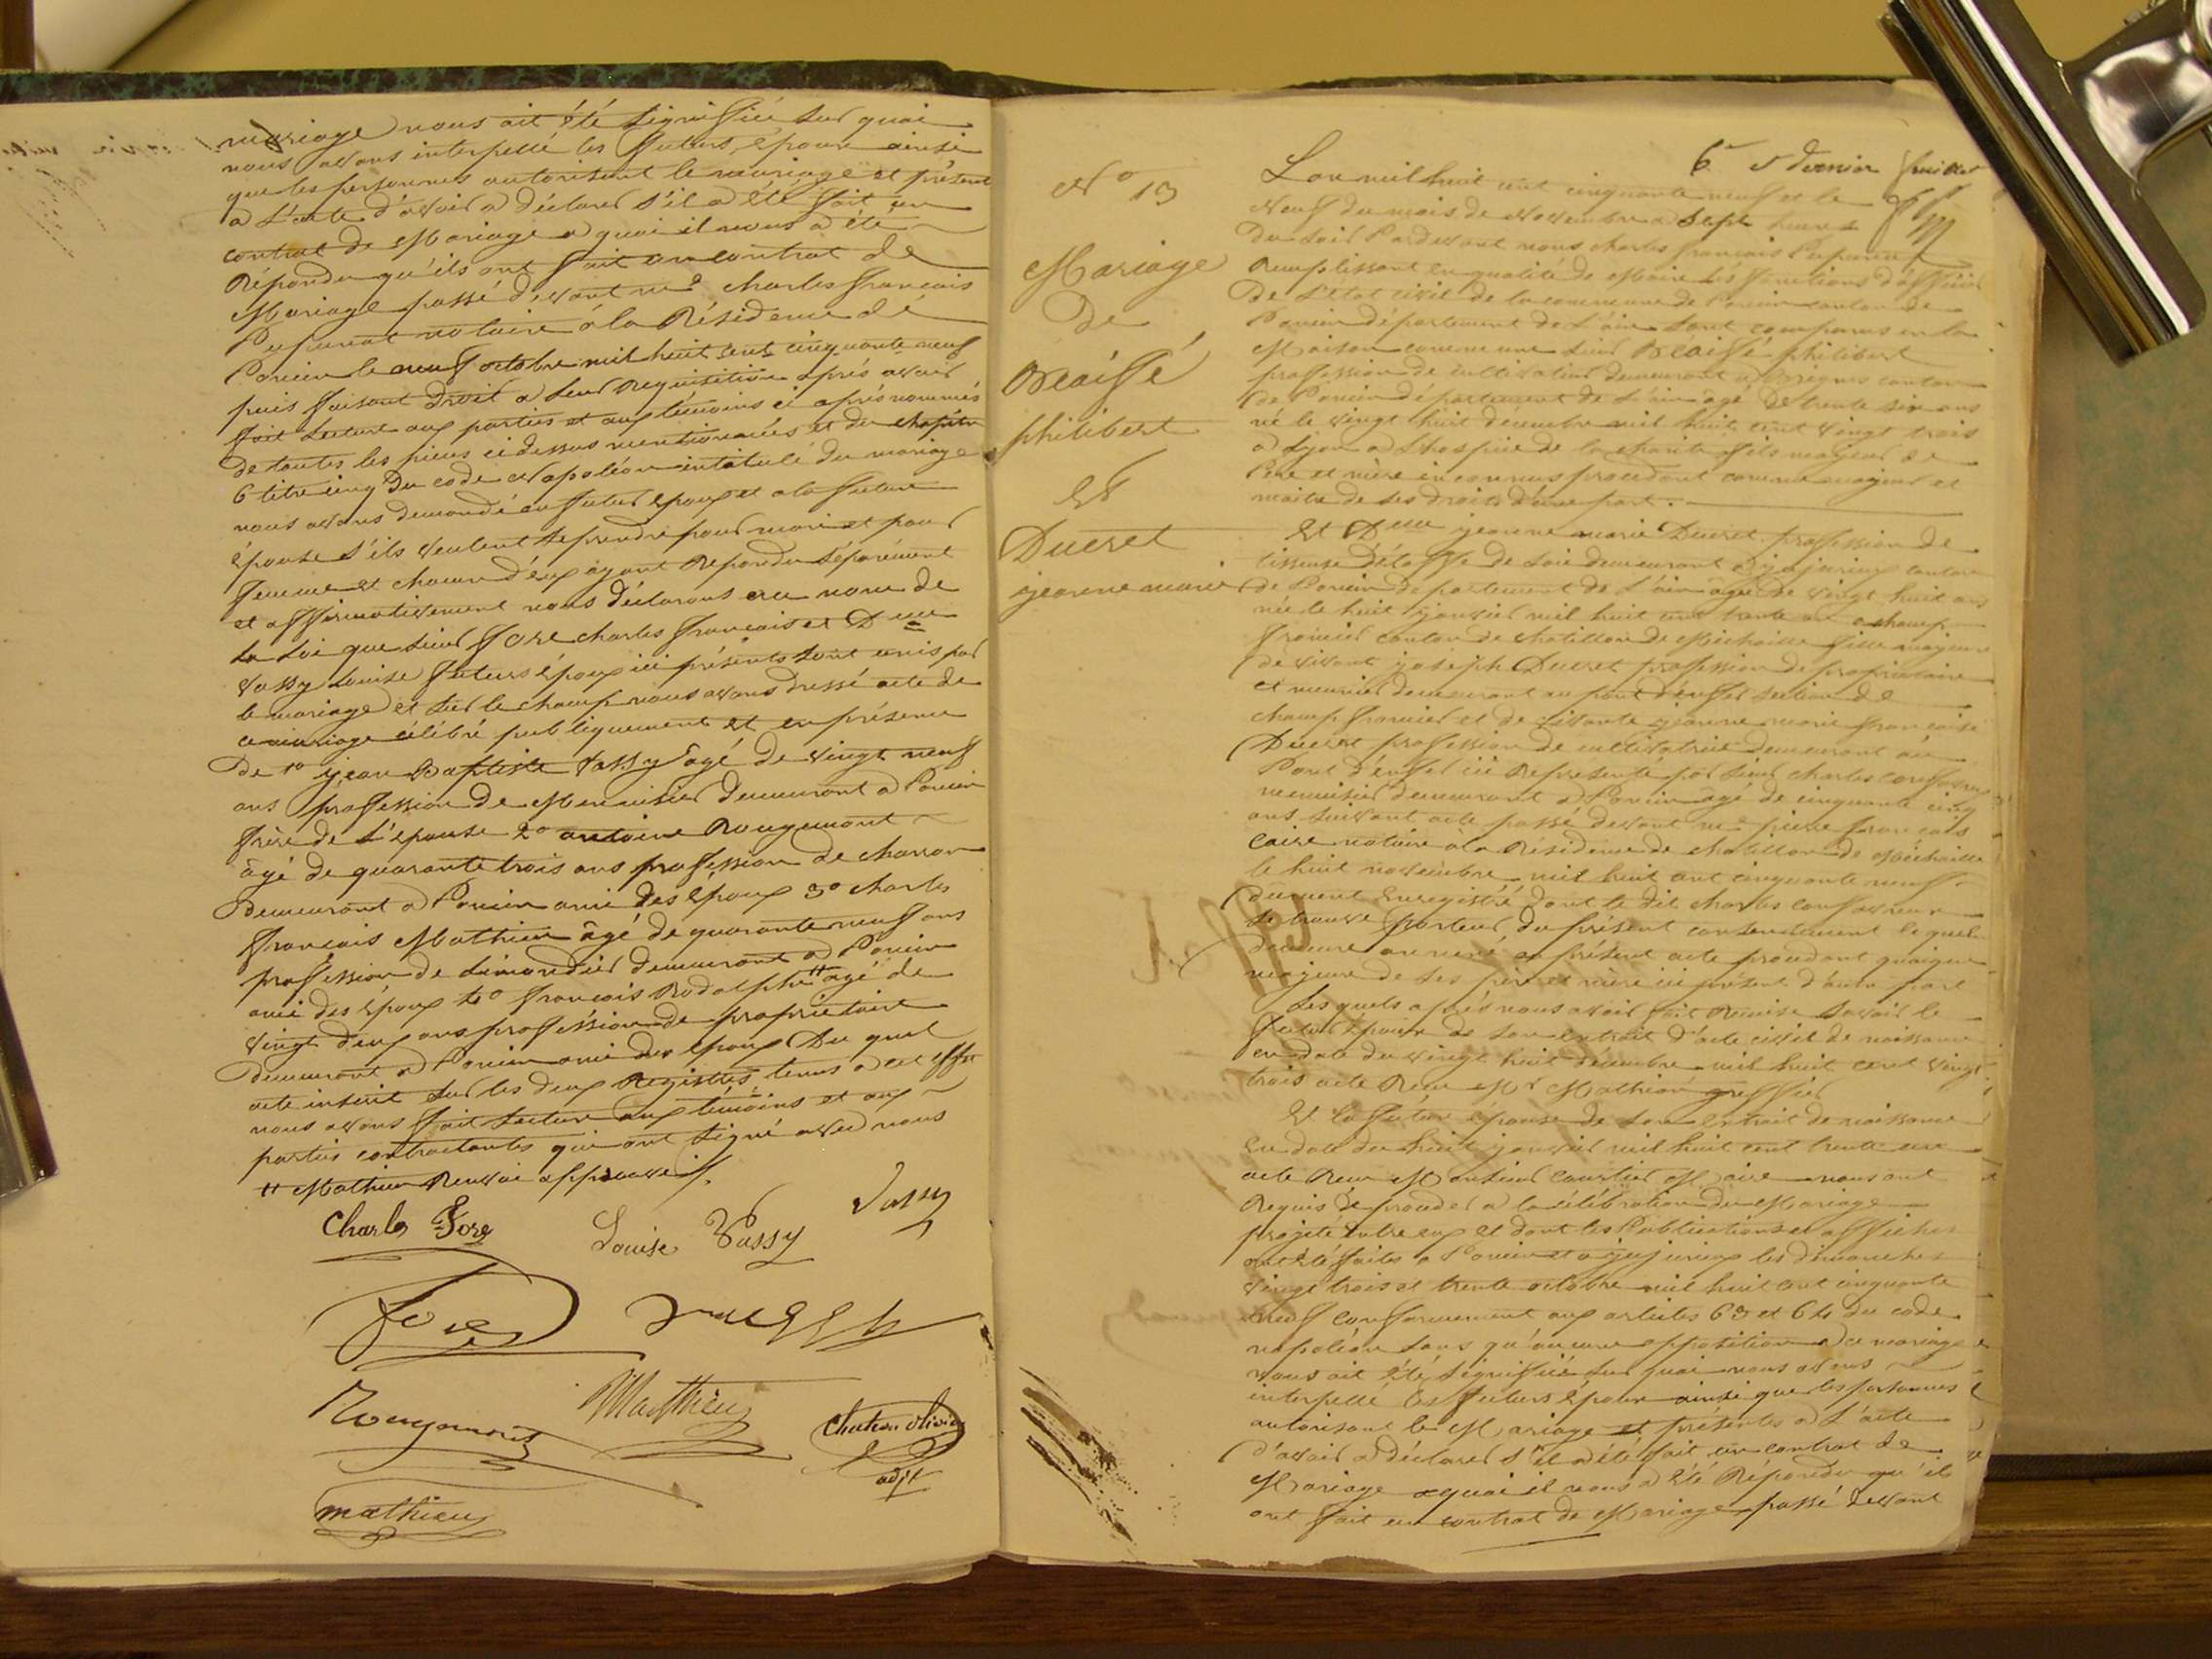 mariage nous ait été signifiée sur quoi
nous avons interpellé les futurs époux ainsi
que les personnes autorisant le mariage et présent
a l'acte d'avoir a déclarer s'il a été fait un
contrat de Mariage a quoi il nous a été
Répondu qu'ils ont fait un contrat de
Mariage passé devant me Charles françois
notaire à la Résidence de
Poncin le neuf octobre mil huit cent cinquante neuf
puis faisant droit a leur requisition après avoir
fait lecture aux parties et aux témoins ci après nommés
de toutes les pieces ci dessus mentionnées et du chapitre
6 titre cinq du code Napoléon intitulé du mariage
nous avons demandé au futur époux et a la future
épouse s'ils veulent se prendre pour mari et pour
femme et chacun d'eux ayant Repondu séparément
et affirmativement nous déclarons au nom de
la Loi que sieur Fore charles françois et Dlle
Vassy Louise futurs époux ici présents sont unis par
le mariage et sur le champ nous avons dressé acte de
ce mariage célébré publiquement et en présence
De 1o jean Baptiste Vassy âgé de vingt neuf
ans profession de Menuisier demeurant a Poncin
frère de l'épouse 2o antoine Rougemont
âgé de quarante trois ans profession de charron
demeurant a Poncin ami des époux 3o charles
françois Mathieu âgé de quarante neuf ans
profession de Limonadier demeurant a Poncin
ami des époux 4o françois Rodolphe # agé de
vingt deux ans profession de propriétaire
demeurant a Poncin ami des époux Du quel
acte inscrit sur les deux Registres tenus a cet effet
nous avons fait lecture aux témoins et aux
parties contractantes qui ont signé avec nous
# Mathieu Renvoi approuvé
Charles Fore Louise Vassy Vassy
Fore
Rougemont Matthieu
adjt
mathieu
6e et dernier feuillet
No 13
Mariage
De
philibert
Et
Ducret
jeanne marie
L'an mil huit cent cinquante neuf et le
Neuf du mois de Novembre a Sept heures
Du soir Pardevant nous charles françois
Remplissant en qualité de Maire les fonctions d'officier
De l'Etat civil de la commune de Poncin canton de
Poncin département de l'ain sont comparus en la
Maison commune sieur philibert
profession de cultivateur demeurant a canton
de Poncin département de l'ain âgé de trente six ans
né le vingt huit décembre mil huit cent vingt trois
a Lyon a L'hospice de la charité fils majeur de
Père et mère inconnus procédant comme majeur et
maitre de ses droits d'une part.
Et Dlle jeanne marie Ducret profession de
tisseuse d'étoffe de soie demeurant a jujurieux canton
de Poncin departement de L'ain âgée de vingt huit ans
née le huit janvier mil huit cent trente un a champ
fromier canton de chatillon de Michaille fille majeure
de vivant joseph Ducret profession de propriétaire
et meunier demeurant au pont d'enfer section de
champfromier et de vivante jeanne marie françoise
Ducret profession de cultivatrice demeurant au
Pont d'enfer ici Représenté par sieur charles
menuisier demeurant a Poncin âgé de cinquante cinq
ans suivant acte passé devant me pierre françois
caire notaire à la Résidence de chatillon de Michaille
le huit novembre mil huit cent cinquante neuf
dûment Enregistré dont le dit charles
se trouve Porteur du présent consentement lequel
demeure annexé au présent acte procédant quoique
majeure de ses père et mère ici présent d'autre part
Lesquels après nous avoir fait Remise savoir le
futur époux de son extrait d'acte civil de naissance
en date du vingt huit décembre mil huit cent vingt
trois acte Reçu Mr Mathion greffier
Et la future épouse de son extrait de naissance
En date du huit janvier mil huit cent trente un
acte Reçu Monsieur Coutier Maire nous ont
Requis de proceder a la célébration du Mariage
projeté entre eux et dont les Publications et affiches
ont été faites a Poncin et a jujurieux les dimanches
vingt trois et trente octobre mil huit cent cinquante
neuf conformement aux articles 63 et 64 du code
napoléon sans qu'aucune opposition a ce mariage
nous ait été signifiée sur quoi nous avons
interpellé les futurs époux ainsi que les personnes
autorisant le Mariage et présentes a L'acte
d'avoir a déclarer s'il a été fait un contrat de
Mariage a quoi il nous a été Répondu qu'ils
ont fait un contrat de Mariage passé devant